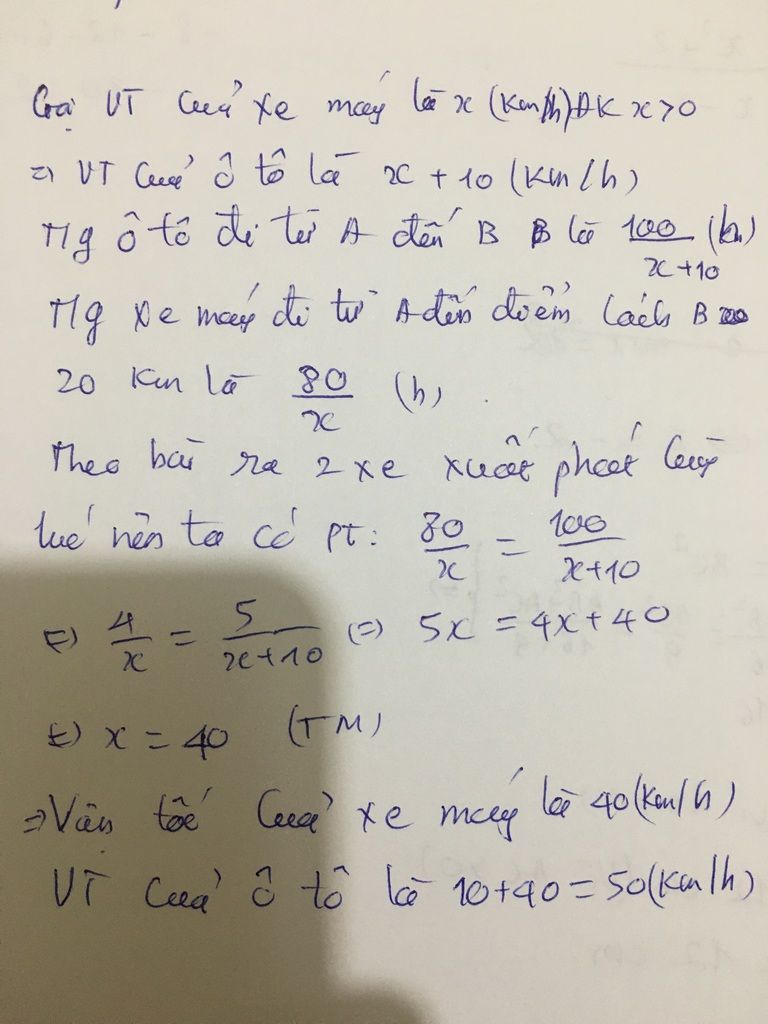 Gọi VT của xe máy là x (km/h) ĐK x>0
=> VT của ô tô là x + 10 (km/h)
T/g ô tô đi từ A đến B là 100/(x+10) (h)
T/g xe máy đi từ A đến điểm cách B
20 km là 80/x (h)
Theo bài ra 2 xe xuất phát cùng
lúc nên ta có PT: 80/x = 100/(x+10)
<=> 4/x = 5/(x+10) <=> 5x = 4x + 40
<=> x = 40 (TM)
=> Vận tốc của xe máy là 40 (km/h)
VT của ô tô là 10+40=50(km/h)